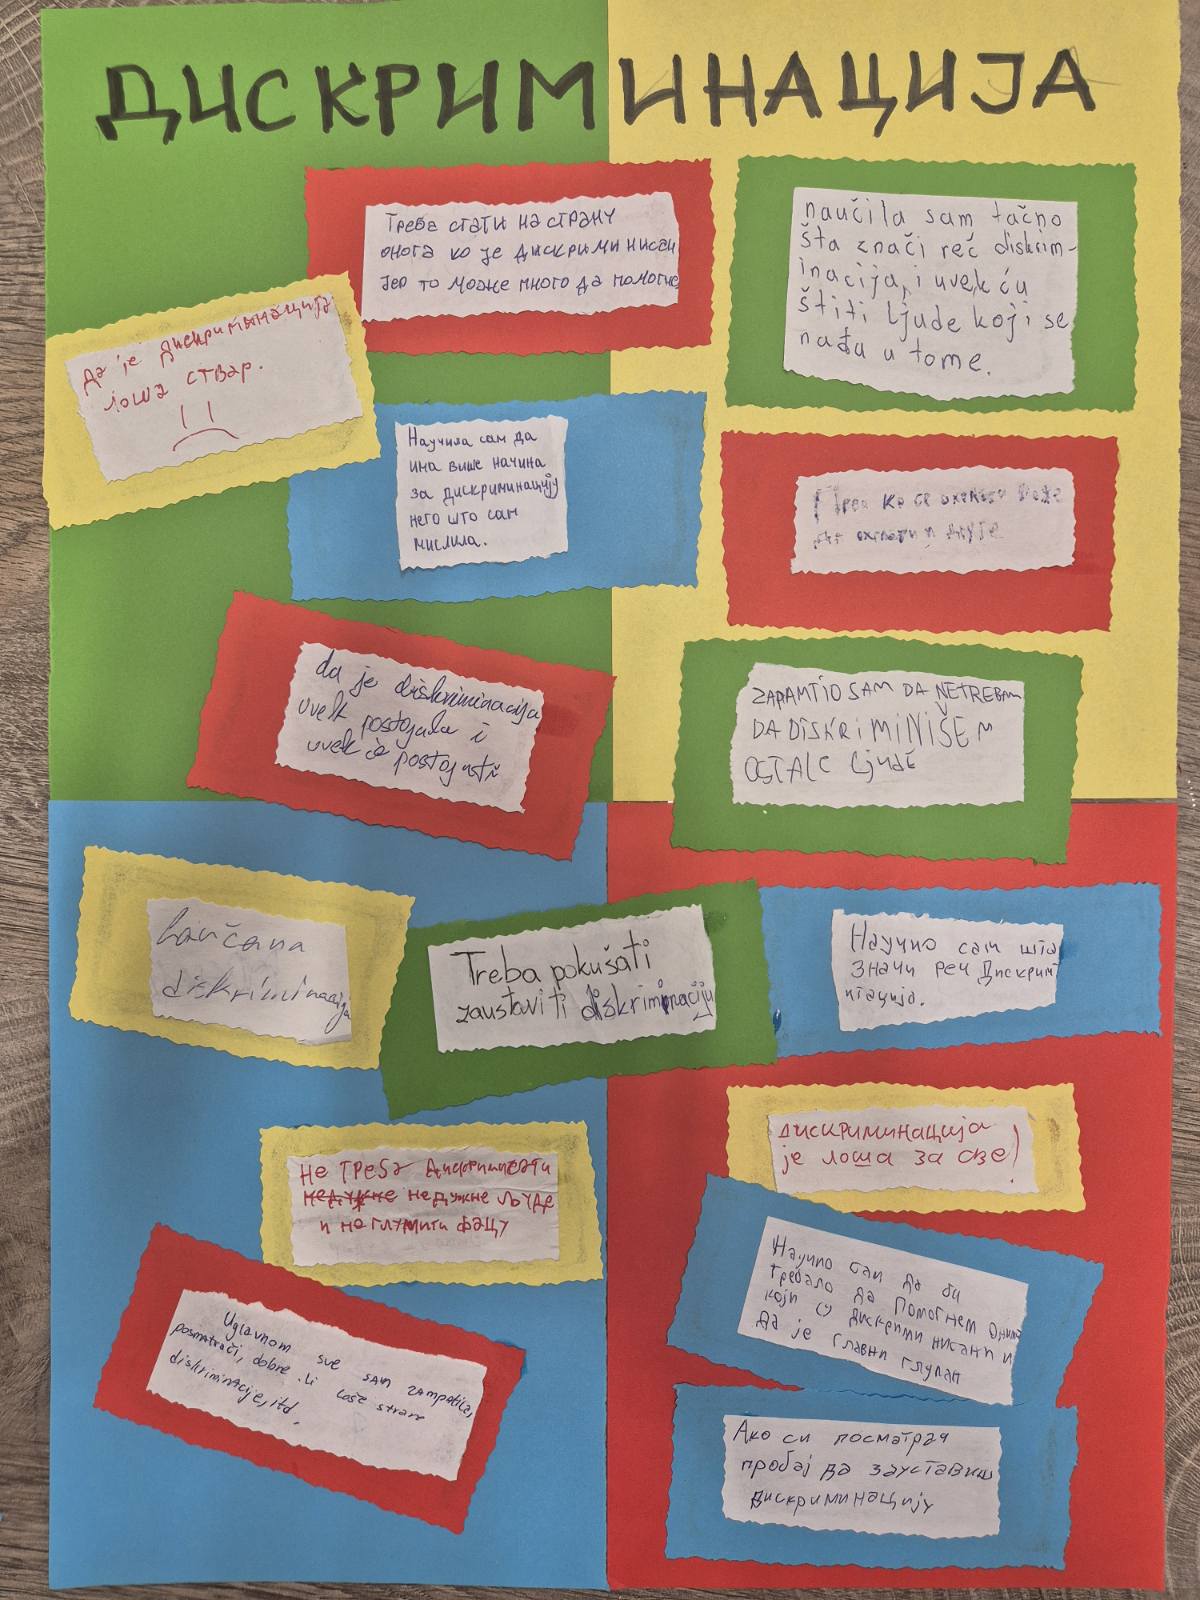 ДИСКРИМИНАЦИЈА
Треба стати на страну
онога ко је дискриминисан
јер то може много да помогне
naučila sam tačno
šta znači reč diskrim-
inacija, i uvek ću
štiti ljude koji se
nađu u tome.
Да је дискриминација
лоша ствар.
Научила сам да
има више начина
за дискриминацију
него што сам
мислила.
ко се
да
da je diskriminacija
uvek postojala i
uvek će postojati
ZAPAMTIO SAM DA NETREBAM
DA DISKRIMINIŠEM
OSTALE ljude
Lančana
diskriminacija
Treba pokušati
zaustaviti diskriminaciju
Научио сам шта
значи реч Дискрим
инација.
Не треба дискриминсати
недужне људе
и не глумити фацу
дискриминација
је лоша за све!
Uglavnom sve sam zampatila,
posmatrači, dobre li loše strane
diskriminacije, itd.
Научио сам да би
требало да помогнем онима
који су дискриминисани и
да је главни глупан
Ако си посматрач
пробај да зауставиш
дискриминацију